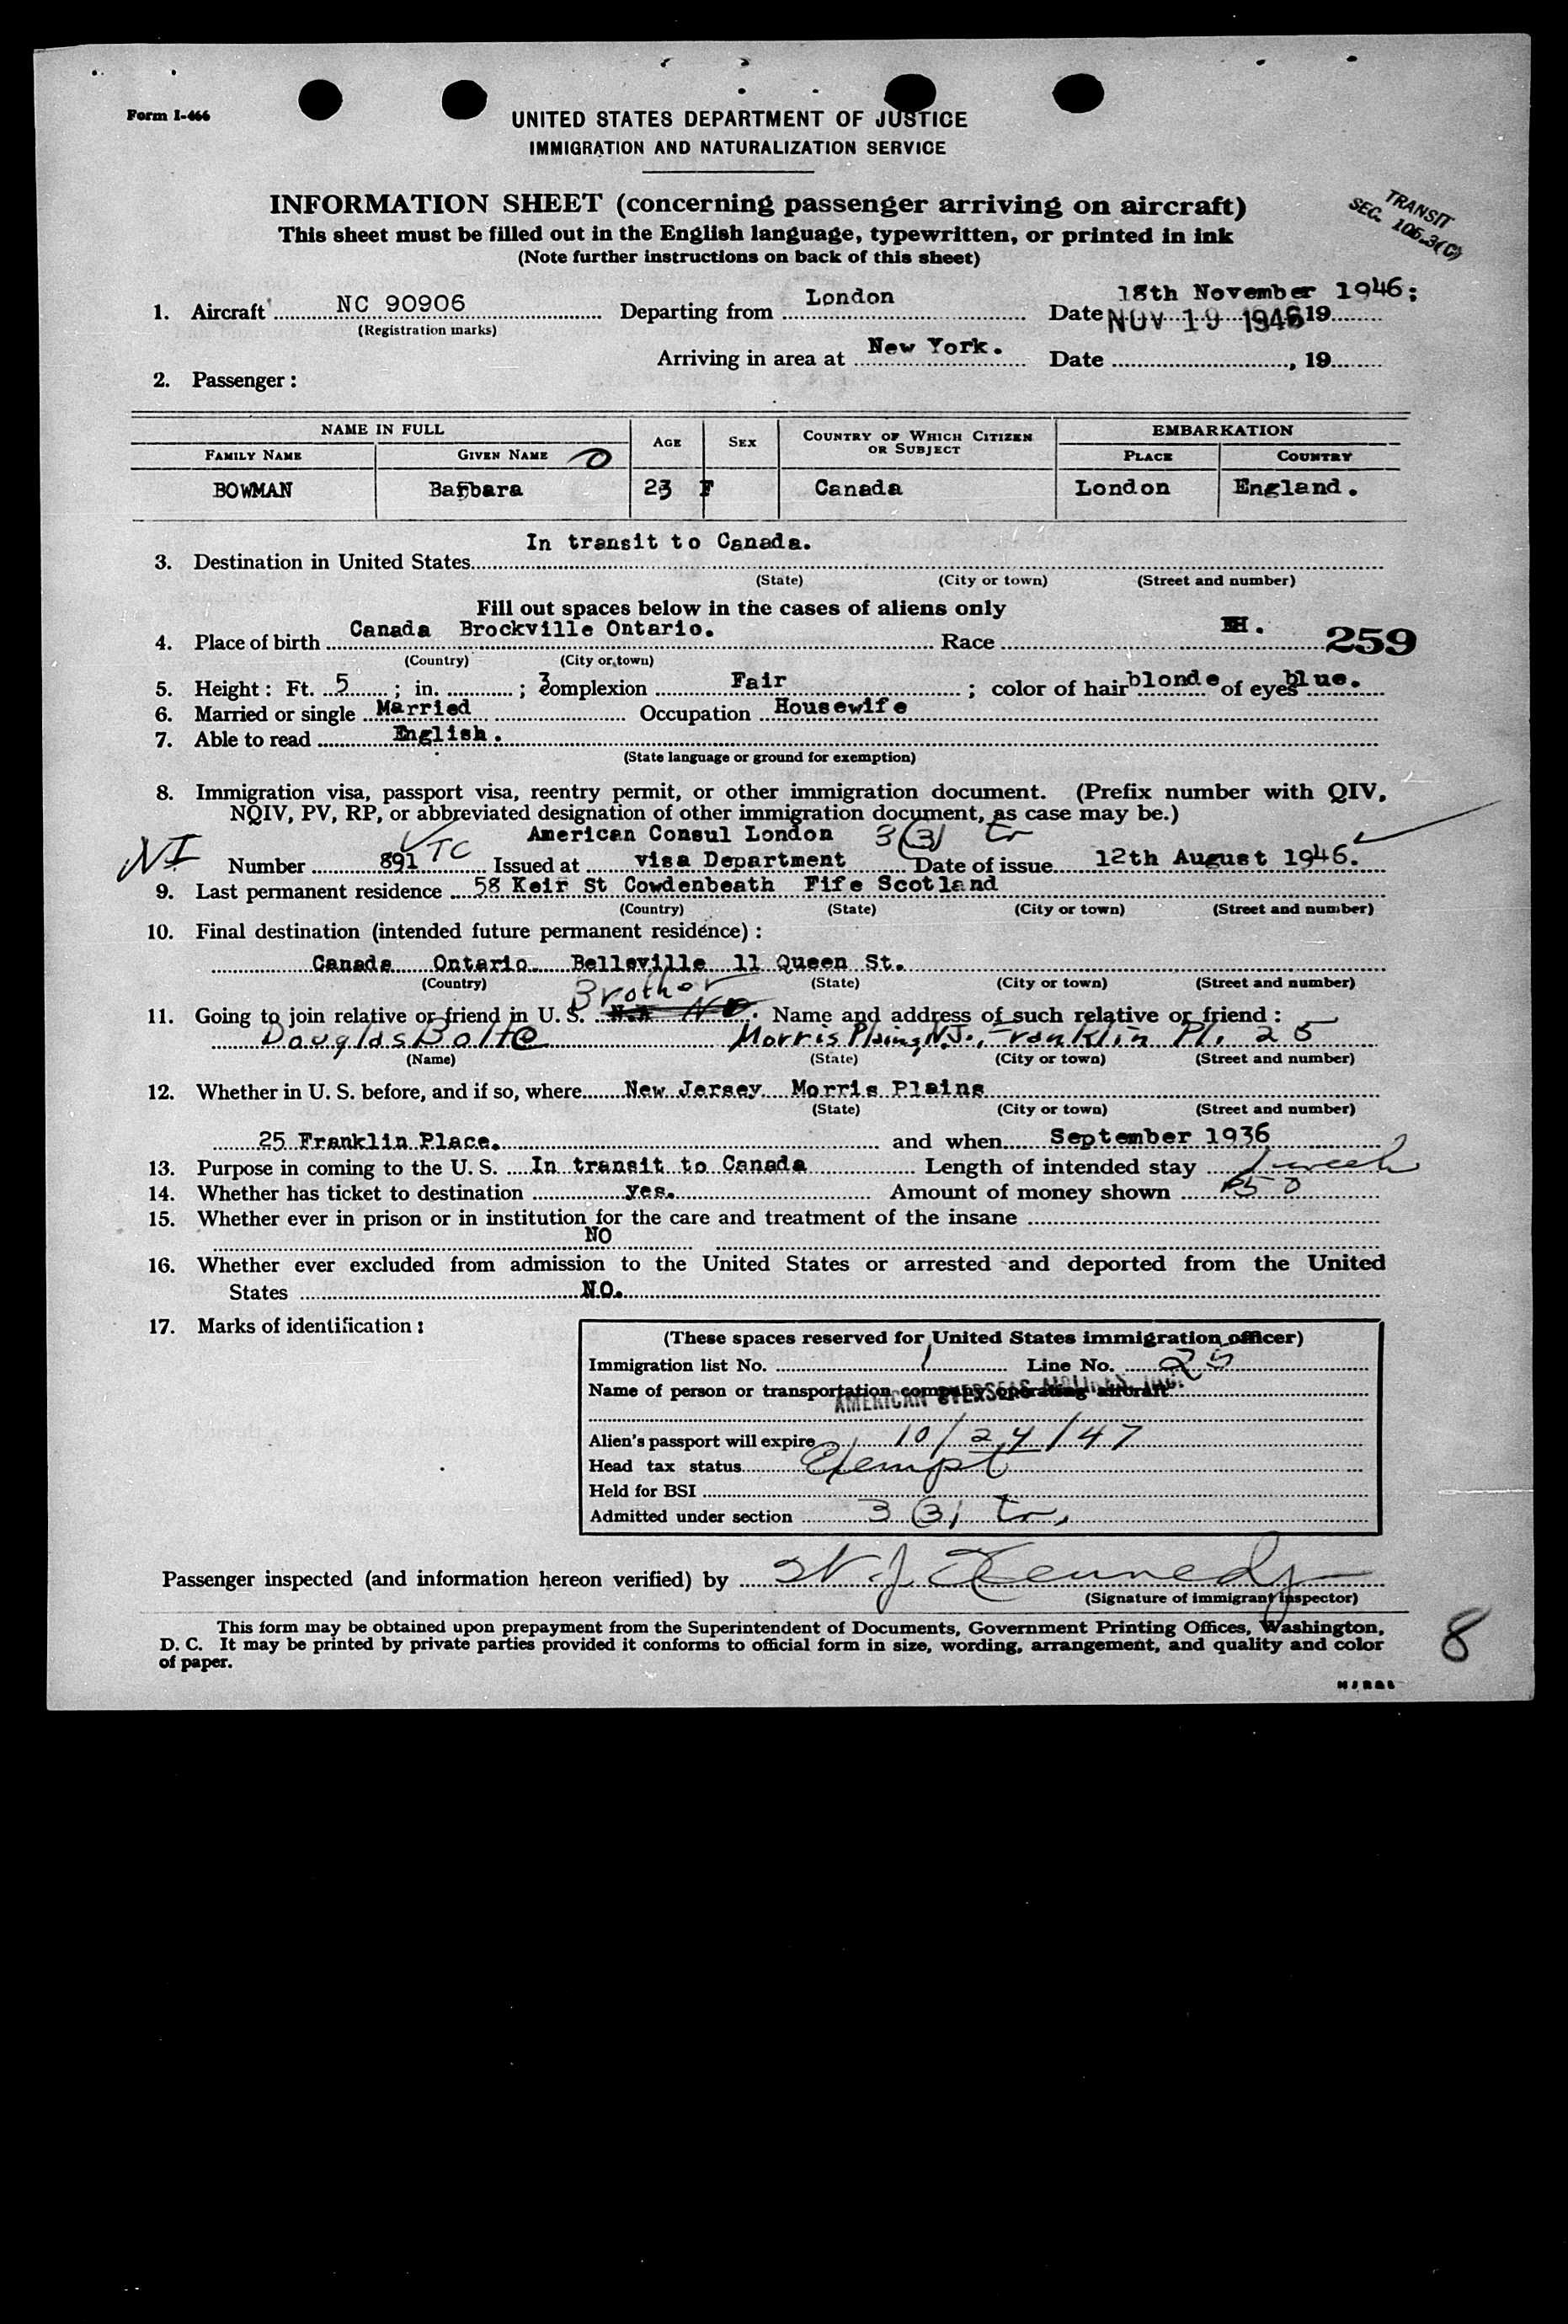 Form I-466
UNITED STATES DEPARTMENT OF JUSTICE
IMMIGRATION AND NATURALIZATION SERVICE
INFORMATION SHEET (concerning passenger arriving on aircraft)
TRANSIT
SEC. 105.3(C)
This sheet must be filled out in the English language, typewritten, or printed in ink
(Note further instructions on back of this sheet)
18th November 1946;
1. Aircraft NC 90906 Departing from London Date NOV 19 1946 19
(Registration marks)
Arriving in area at New York. Date , 19
2. Passenger:
NAME IN FULL AGE SEX COUNTRY OF WHICH CITIZEN OR SUBJECT EMBARKATION
FAMILY NAME GIVEN NAME PLACE COUNTRY
BOWMAN Barbara 23 F Canada London England.
In transit to Canada.
3. Destination in United States
(State) (City or town) (Street and number)
Fill out spaces below in the cases of aliens only
4. Place of birth Canada Brockville Ontario. Race 259
(Country) (City or town)
5. Height: Ft. 5 ; in. 3 ; complexion Fair ; color of hair blonde of eyes blue.
6. Married or single Married Occupation Housewife
7. Able to read English.
(State language or ground for exemption)
8. Immigration visa, passport visa, reentry permit, or other immigration document. (Prefix number with QIV,
NQIV, PV, RP, or abbreviated designation of other immigration document, as case may be.)
American Consul London 3(3) tr
NI Number 891 VTC Issued at visa Department Date of issue 12th August 1946.
9. Last permanent residence 58 Keir St Cowdenbeath Fife Scotland
(Country) (State) (City or town) (Street and number)
10. Final destination (intended future permanent residence):
Canada Ontario Belleville 11 Queen St.
(Country) (State) (City or town) (Street and number)
Brother
11. Going to join relative or friend in U. S. Name and address of such relative or friend:
Douglas Bolte Morris Plains N.J., Franklin Pl. 25
(Name) (State) (City or town) (Street and number)
12. Whether in U. S. before, and if so, where New Jersey Morris Plains
(State) (City or town) (Street and number)
25 Franklin Place. and when September 1936
13. Purpose in coming to the U. S. In transit to Canada Length of intended stay 1 week
14. Whether has ticket to destination yes. Amount of money shown 50
15. Whether ever in prison or in institution for the care and treatment of the insane
NO
16. Whether ever excluded from admission to the United States or arrested and deported from the United
States NO.
17. Marks of identification:
(These spaces reserved for United States immigration officer)
Immigration list No. 1 Line No. 25
Name of person or transportation company operating aircraft
AMERICAN OVERSEAS AIRLINES, INC.
Alien's passport will expire 10/24/47
Head tax status Exempt
Held for BSI
Admitted under section 3(3) tr,
Passenger inspected (and information hereon verified) by W. J. Kennedy
(Signature of immigrant inspector)
This form may be obtained upon prepayment from the Superintendent of Documents, Government Printing Offices, Washington,
D. C. It may be printed by private parties provided it conforms to official form in size, wording, arrangement, and quality and color
of paper.
8